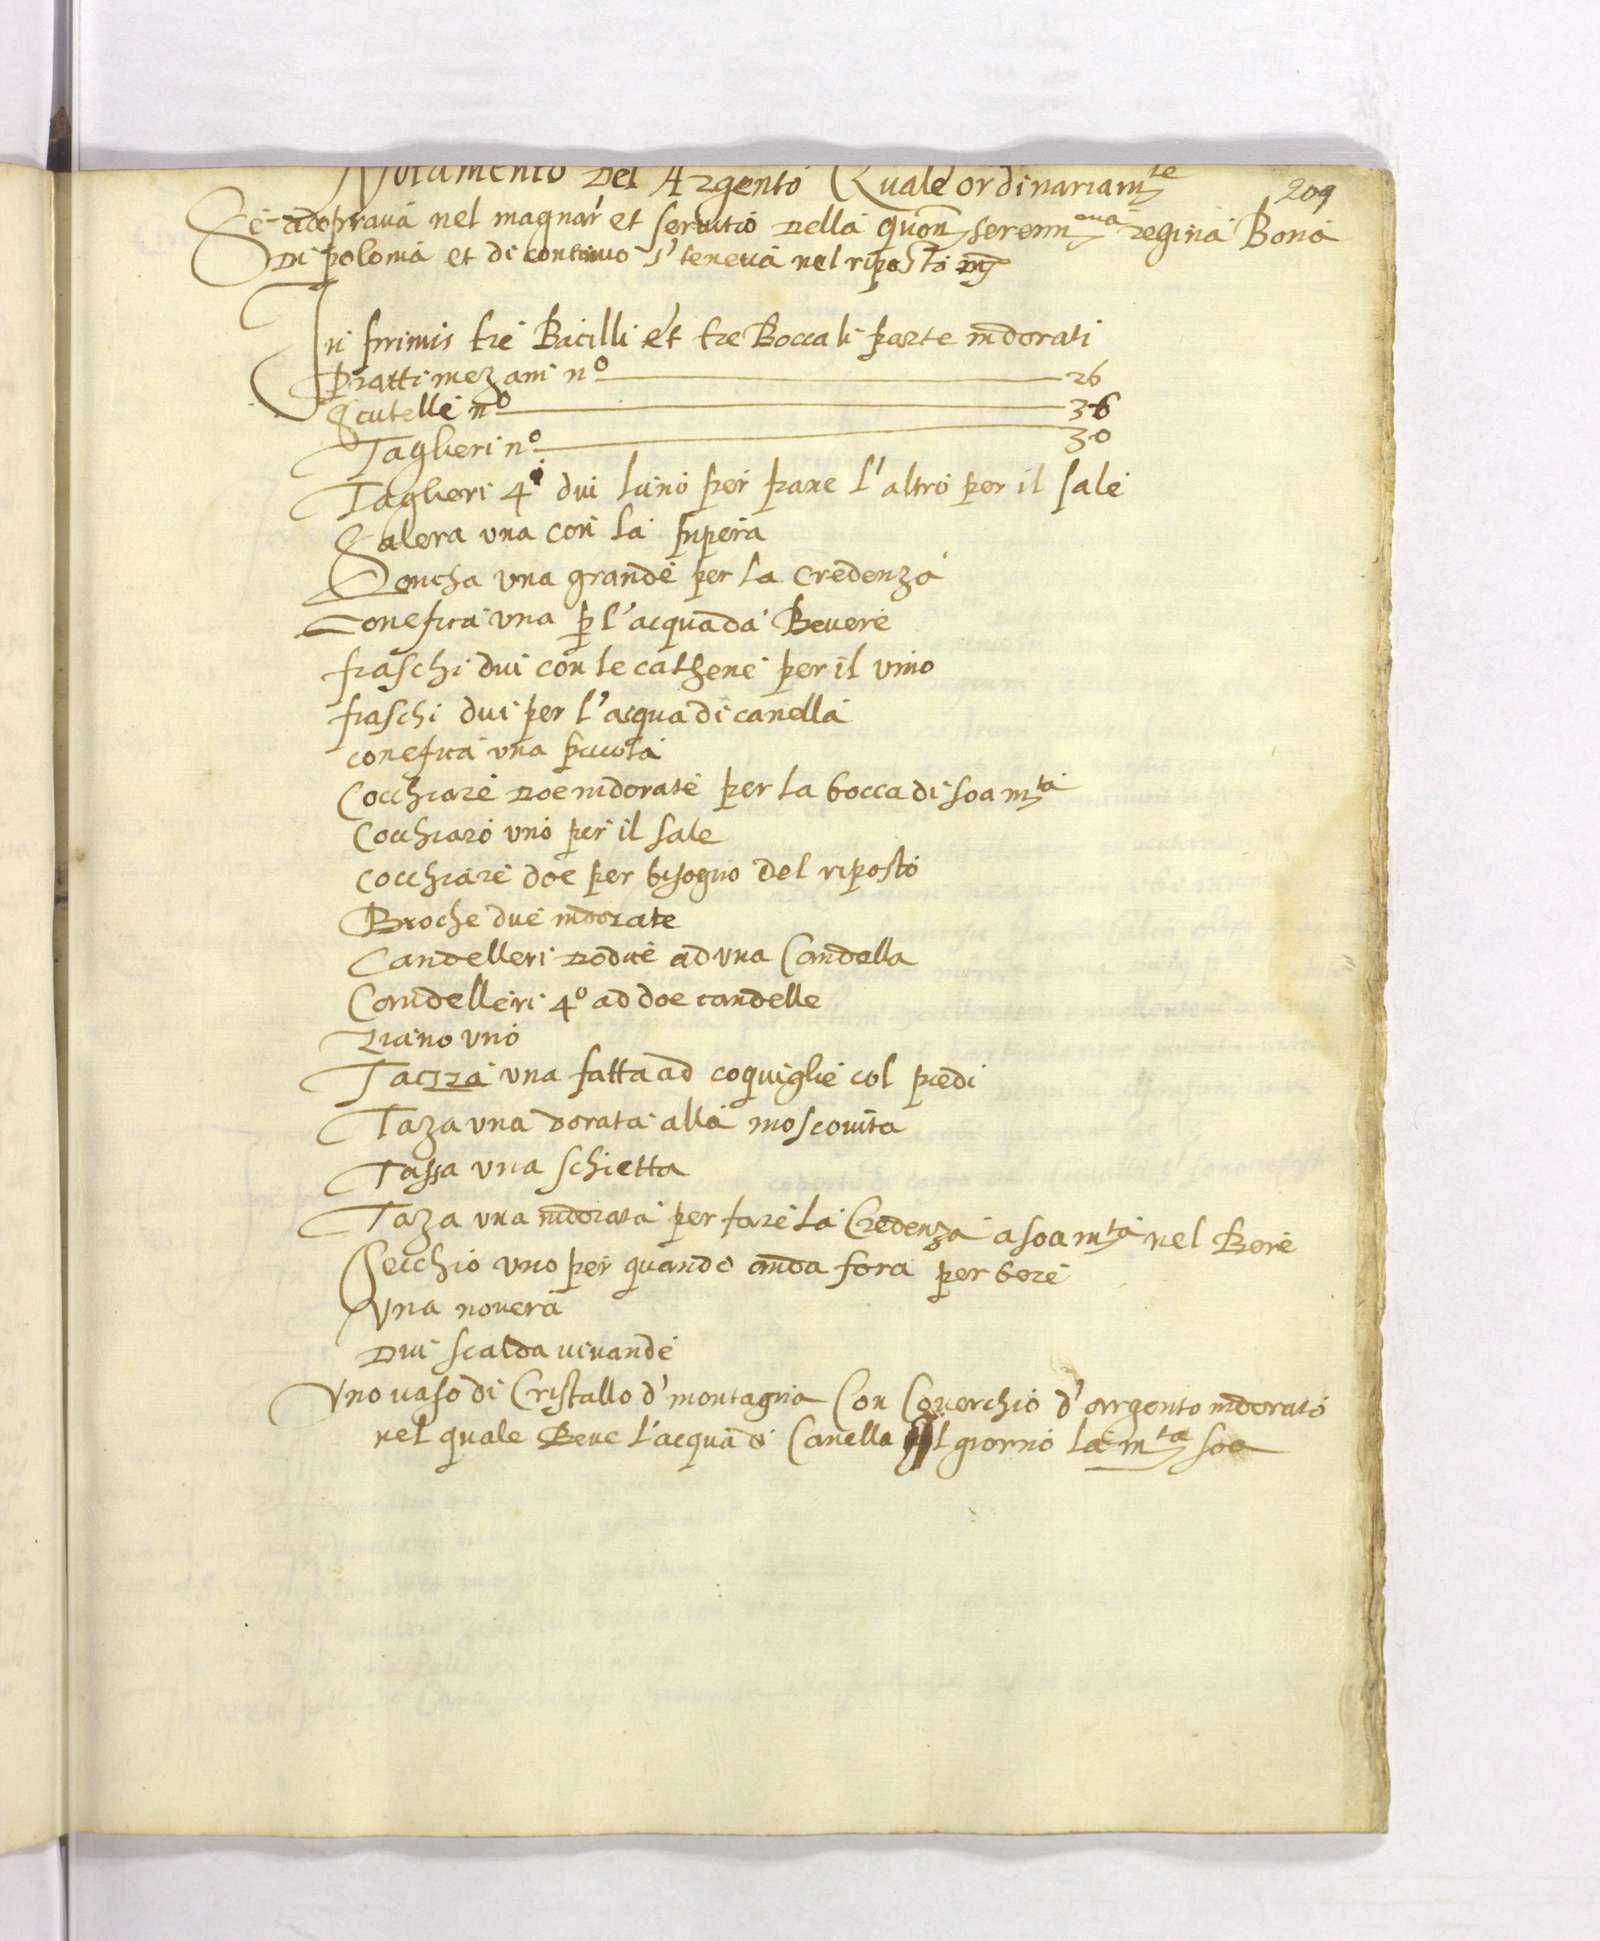 Notamento del Argento Quale ordinariam.te
209
Se adoprava nel magnar et servitio della quon. seren.ma regina Bona
di polonia et di continuo s' teneva nel riposto
In primis tre Bacilli et tre Boccali parte indorati
Piatti mezani n.o 26
Scutelle n.o 36
Taglieri n.o 30
Taglieri 4 dui luno per pane l'altro per il sale
Salera una con la
Concha una grande per la credenza
Conestra una p l'acqua da Bevere
fiaschi dui con le cathene per il vino
fiaschi dui per l'acqua di canella
conestra una picciola
Cocchiare doe indorate per la bocca di soa m.ta
Cocchiaro uno per il sale
cocchiare doe per bisogno del riposto
Broche due indorate
Candelleri dodice ad una Candella
Candelleri 4.o ad doe candelle
uno
Tazza una fatta ad coquiglie col piedi
Taza una dorata alla moscovita
Tassa una schietta
Taza una indorata per fare la Credenza a soa m.ta nel Bere
Secchio uno per quando anda fora per bere
Una
Dui scalda vivande
Uno vaso di Cristallo d' montagna Con Coverchio d'argento indorato
nel quale Beve l'acqua d Canella il giorno la m.ta soa